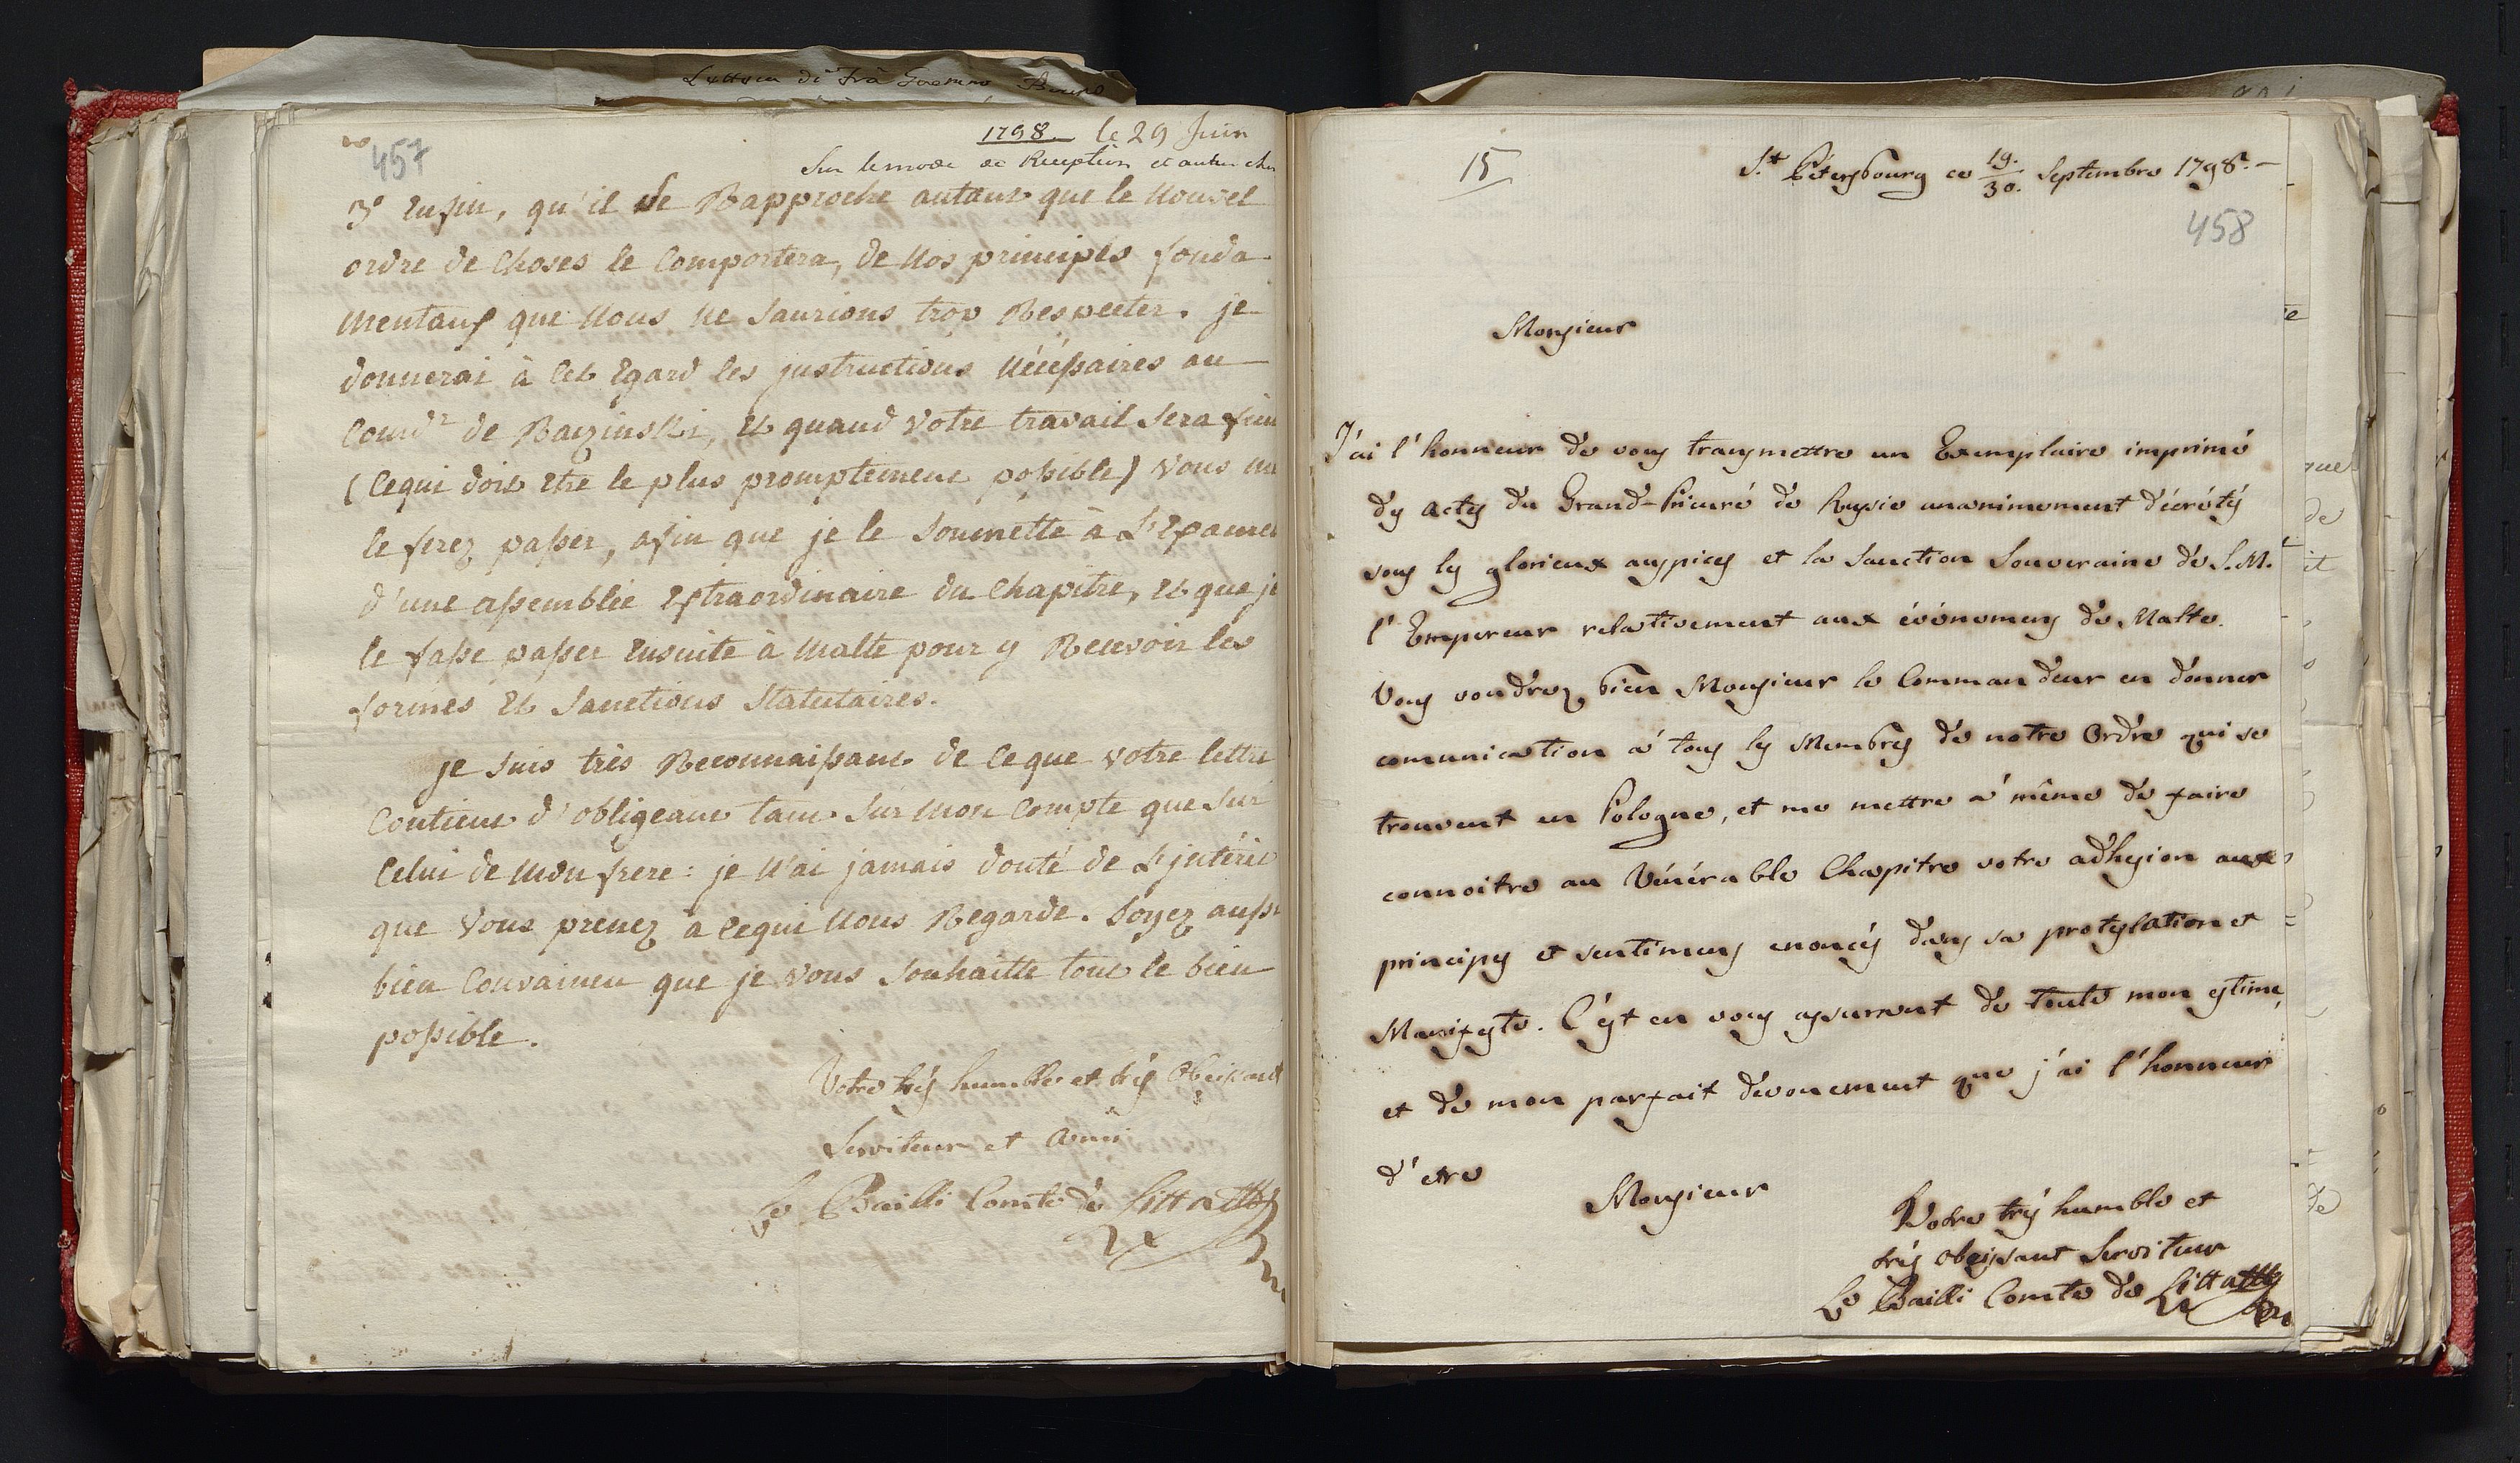 Lettera di Frà Gaetano Bruno
457
1798 le 29 Juin
Sur le mode de Reception et autre cho
3º Enfin, qu'il se Rapproche autant que le Nouvel
ordre de Choses le Comportera, de Nos principes fonda
mentaux que Nous Ne Saurions trop Respecter. je
donnerai à Cet Egard les jnstructions Nécéssaires au
Comdr de Raczinski, Et quand Votre travail Sera fini
(Cequi doit Etre le plus promptement possible) Vous me
le ferez passer, afin que je le Soumette à L'Examen
d'une assemblée Extraordinaire du Chapitre, Et que je
le fasse passer Ensuite à Malte pour y Recevoir les
formes Et Sanctions Statutaires.
je Suis très Reconnaissant de Ceque Votre lettre
Contient d'obligeant tant Sur Mon Compte que Sur
Celui de Mon frere : je N'ai jamais douté de L'jntérêt
que Vous prenez à Cequi Nous Regarde. Soyez aussi
bien Convaincu que je Vous Souhaitte tout le bien
possible.
Votre très humble et très Obeissant
Serviteur et Ami
Le Bailli Comte de Litta
15
St. Pétersbourg ce 19./30. Septembre 1798. -
458
Monsieur
J'ai l'honneur de vous transmettre un Exemplaire imprimé
des actes du Grand-Prieuré de Russie unanimement décrétés
sous les glorieux auspices et la Sanction Souveraine de S. M.
l'Empereur relativement aux événemens de Malte.
Vous voudrez bien Monsieur le Commandeur en donner
comunication à tous les Membres de notre Ordre qui se
trouvent en Pologne, et me mettre à même de faire
connoitre au Vénérable Chapitre votre adhesion aux
principes et sentimens enoncés dans sa protestation et
Manifeste. C'est en vous assurant de toute mon estime,
et de mon parfait dévouement que j'ai l'honneur
d'etre
Monsieur
Votre très humble et
très obeissant Serviteur
Le Bailli Comte de Litta